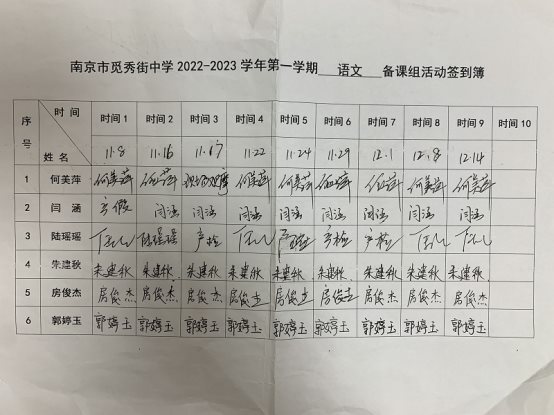 南京市觅秀街中学 2022-2023 学年第一学期 语文 备课组活动签到簿
序号 时间 姓名 时间 1 时间 2 时间 3 时间 4 时间 5 时间 6 时间 7 时间 8 时间 9 时间 10
11.8 11.16 11.17 11.22 11.24 11.29 12.1 12.8 12.14
1 何美萍 何美萍 何美萍 何美萍 何美萍 何美萍 何美萍 何美萍
2 闫涵 产假 闫涵 闫涵 闫涵 闫涵 闫涵 闫涵 闫涵 闫涵
3 陆瑶瑶 陆瑶瑶
4 朱建秋 朱建秋 朱建秋 朱建秋 朱建秋 朱建秋 朱建秋 朱建秋 朱建秋 朱建秋
5 房俊杰 房俊杰 房俊杰 房俊杰 房俊杰 房俊杰 房俊杰 房俊杰 房俊杰 房俊杰
6 郭婷玉 郭婷玉 郭婷玉 郭婷玉 郭婷玉 郭婷玉 郭婷玉 郭婷玉 郭婷玉 郭婷玉